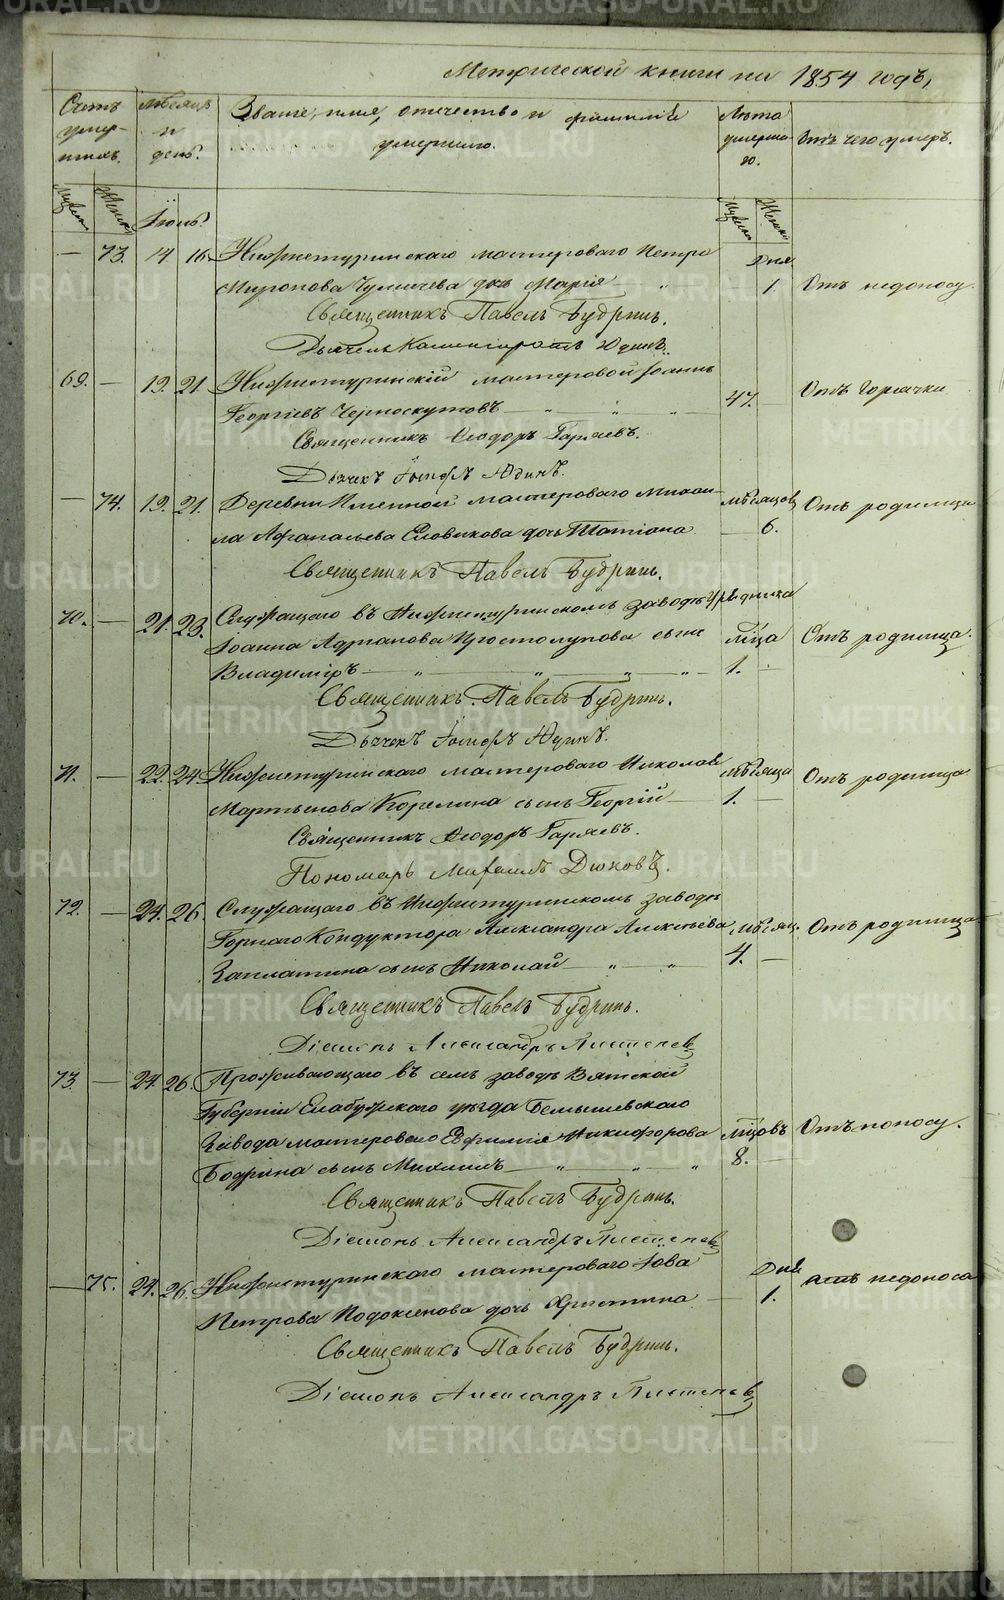 Метрической книги на 1854 годъ,
Счетъ умер-шихъ. Мѣсяцъ и день. Званіе, имя, отчество и фамилія умершаго. Лѣта умерша-го. Отъ чего умеръ.
Мужска Женска Мужска Женска
Іюнь.
— 73. 14 16. Нижнетуринскаго мастероваго Петра Дня
Миронова дочь Марія „ 1. Отъ недоносу.
Священникъ Павелъ Будринъ.
Юдинъ.
69. — 19. 21 Нижнетуринскій мастеровой Іоаннъ 47. Отъ горячки
Георгіевъ Черноскутовъ „ „ „
Священникъ Ѳеодоръ Гаряевъ.
Дьячекъ Іосифъ Юдинъ.
— 74. 19. 21. Деревни Именной мастероваго Михаи- мѣсяцовъ Отъ родимца
ла Афанасьева Еловикова дочь Татіана — 6.
Священникъ Павелъ Будринъ.
70. — 21. 23. Служащаго въ Нижнетуринскомъ заводѣ Урядника
Іоанна Адріанова сынъ мѣца Отъ родимца.
Владиміръ — „ — „ — „ — „ — 1. —
Священникъ Павелъ Будринъ.
Дьячекъ Іосифъ Юдинъ.
71. — 22. 24. Нижнетуринскаго мастероваго Николая мѣсяца Отъ родимца
Мартынова Корелина сынъ Георгій 1. —
Священникъ Ѳеодоръ Гаряевъ.
Пономарь Михаилъ Дюковъ.
72. — 24. 26. Служащаго въ Нижнетуринскомъ заводѣ
Горнаго Кондуктора Александра Алексѣева мѣсяц. Отъ родимца
Заплатина сынъ Николай — „ — „ 4. —
Священникъ Павелъ Будринъ.
Діаконъ Александръ
73. — 24. 26. Проживающаго въ семъ заводѣ Вятской
Губерніи Елабужскаго уѣзда Бемышевскаго
Завода мастероваго Евфимія Никифорова мѣцовъ Отъ поносу.
Бодрина сынъ Михаилъ — „ „ „ 8. —
Священникъ Павелъ Будринъ.
Діаконъ Александръ
— 75. 24. 26. Нижнетуринскаго мастероваго Іова Дня отъ недоноса
Петрова Подоксенова дочь Христина — 1.
Священникъ Павелъ Будринъ.
Діаконъ Александръ
METRIKI.GASO-URAL.RU